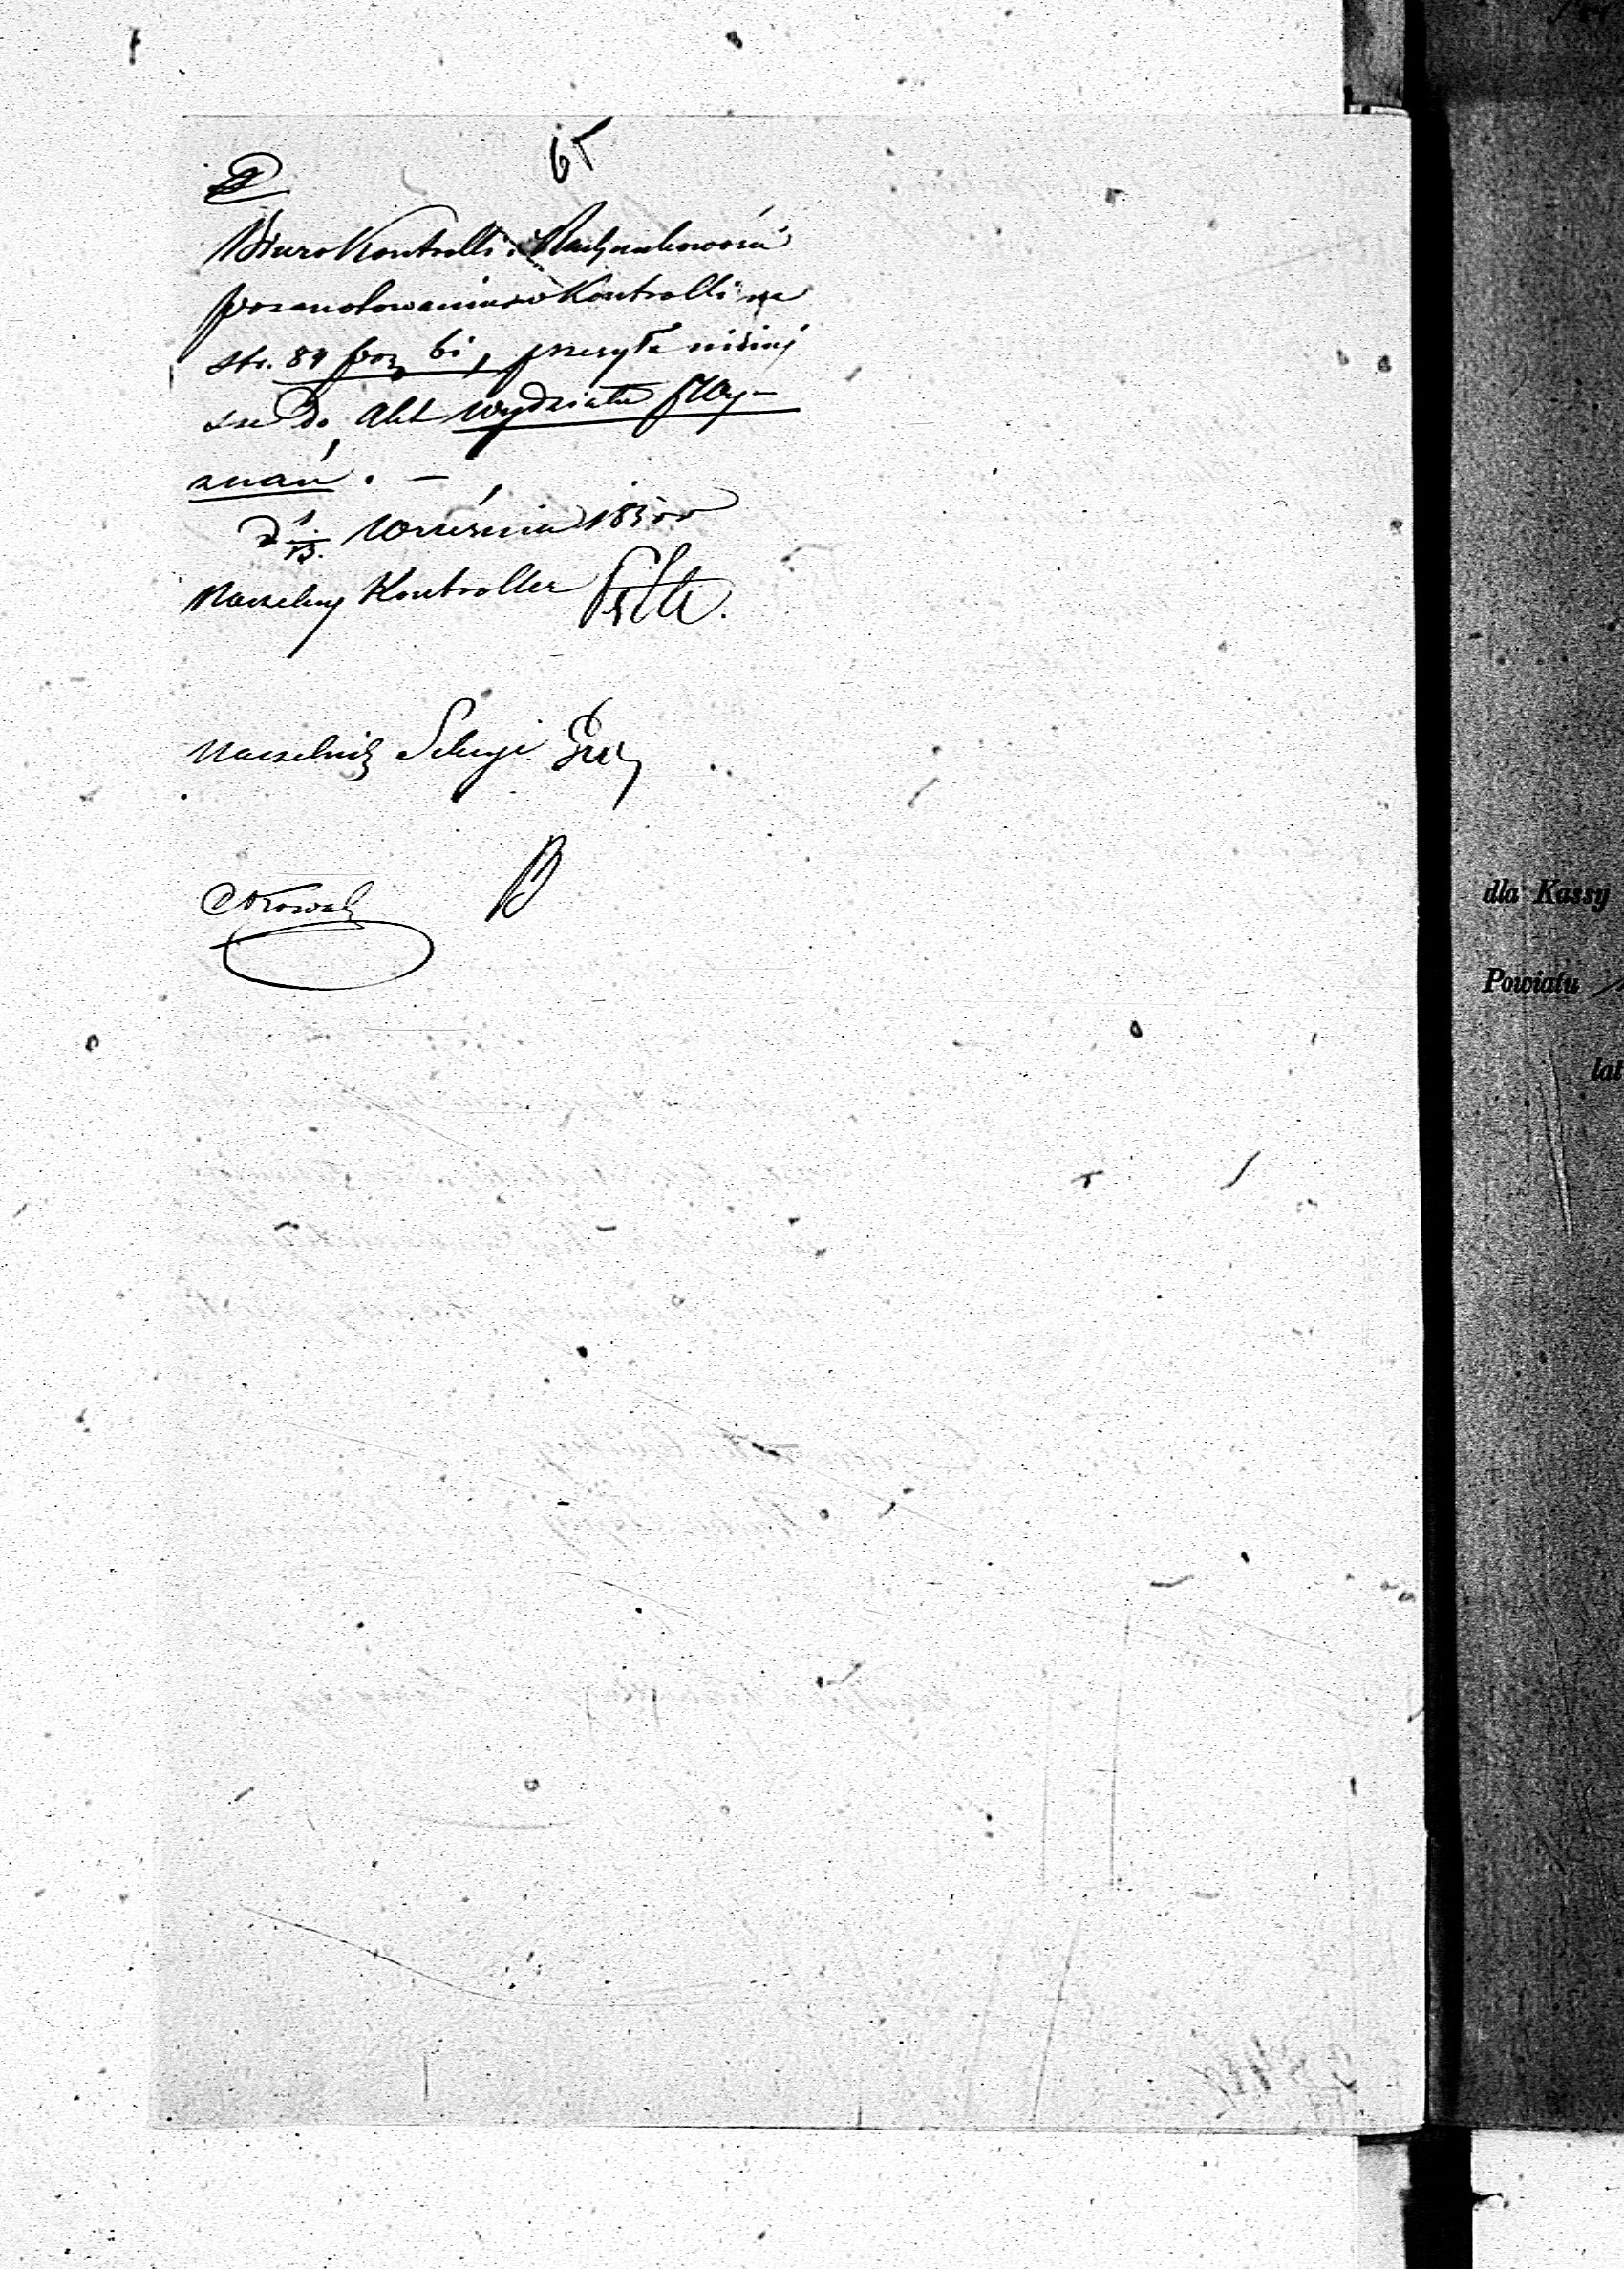 65
Biuro Kontrolli i Rachunkowości
po zanotowaniu w Kontrolli na
str. 84 poz 61, przesyła niniej
sze do Akt Wydziału
znań. —
d 1/13. Września 185 r
Naczelny Kontroller
Naczelnik Sekcyi
B
dla Kassy
Powiatu
lat